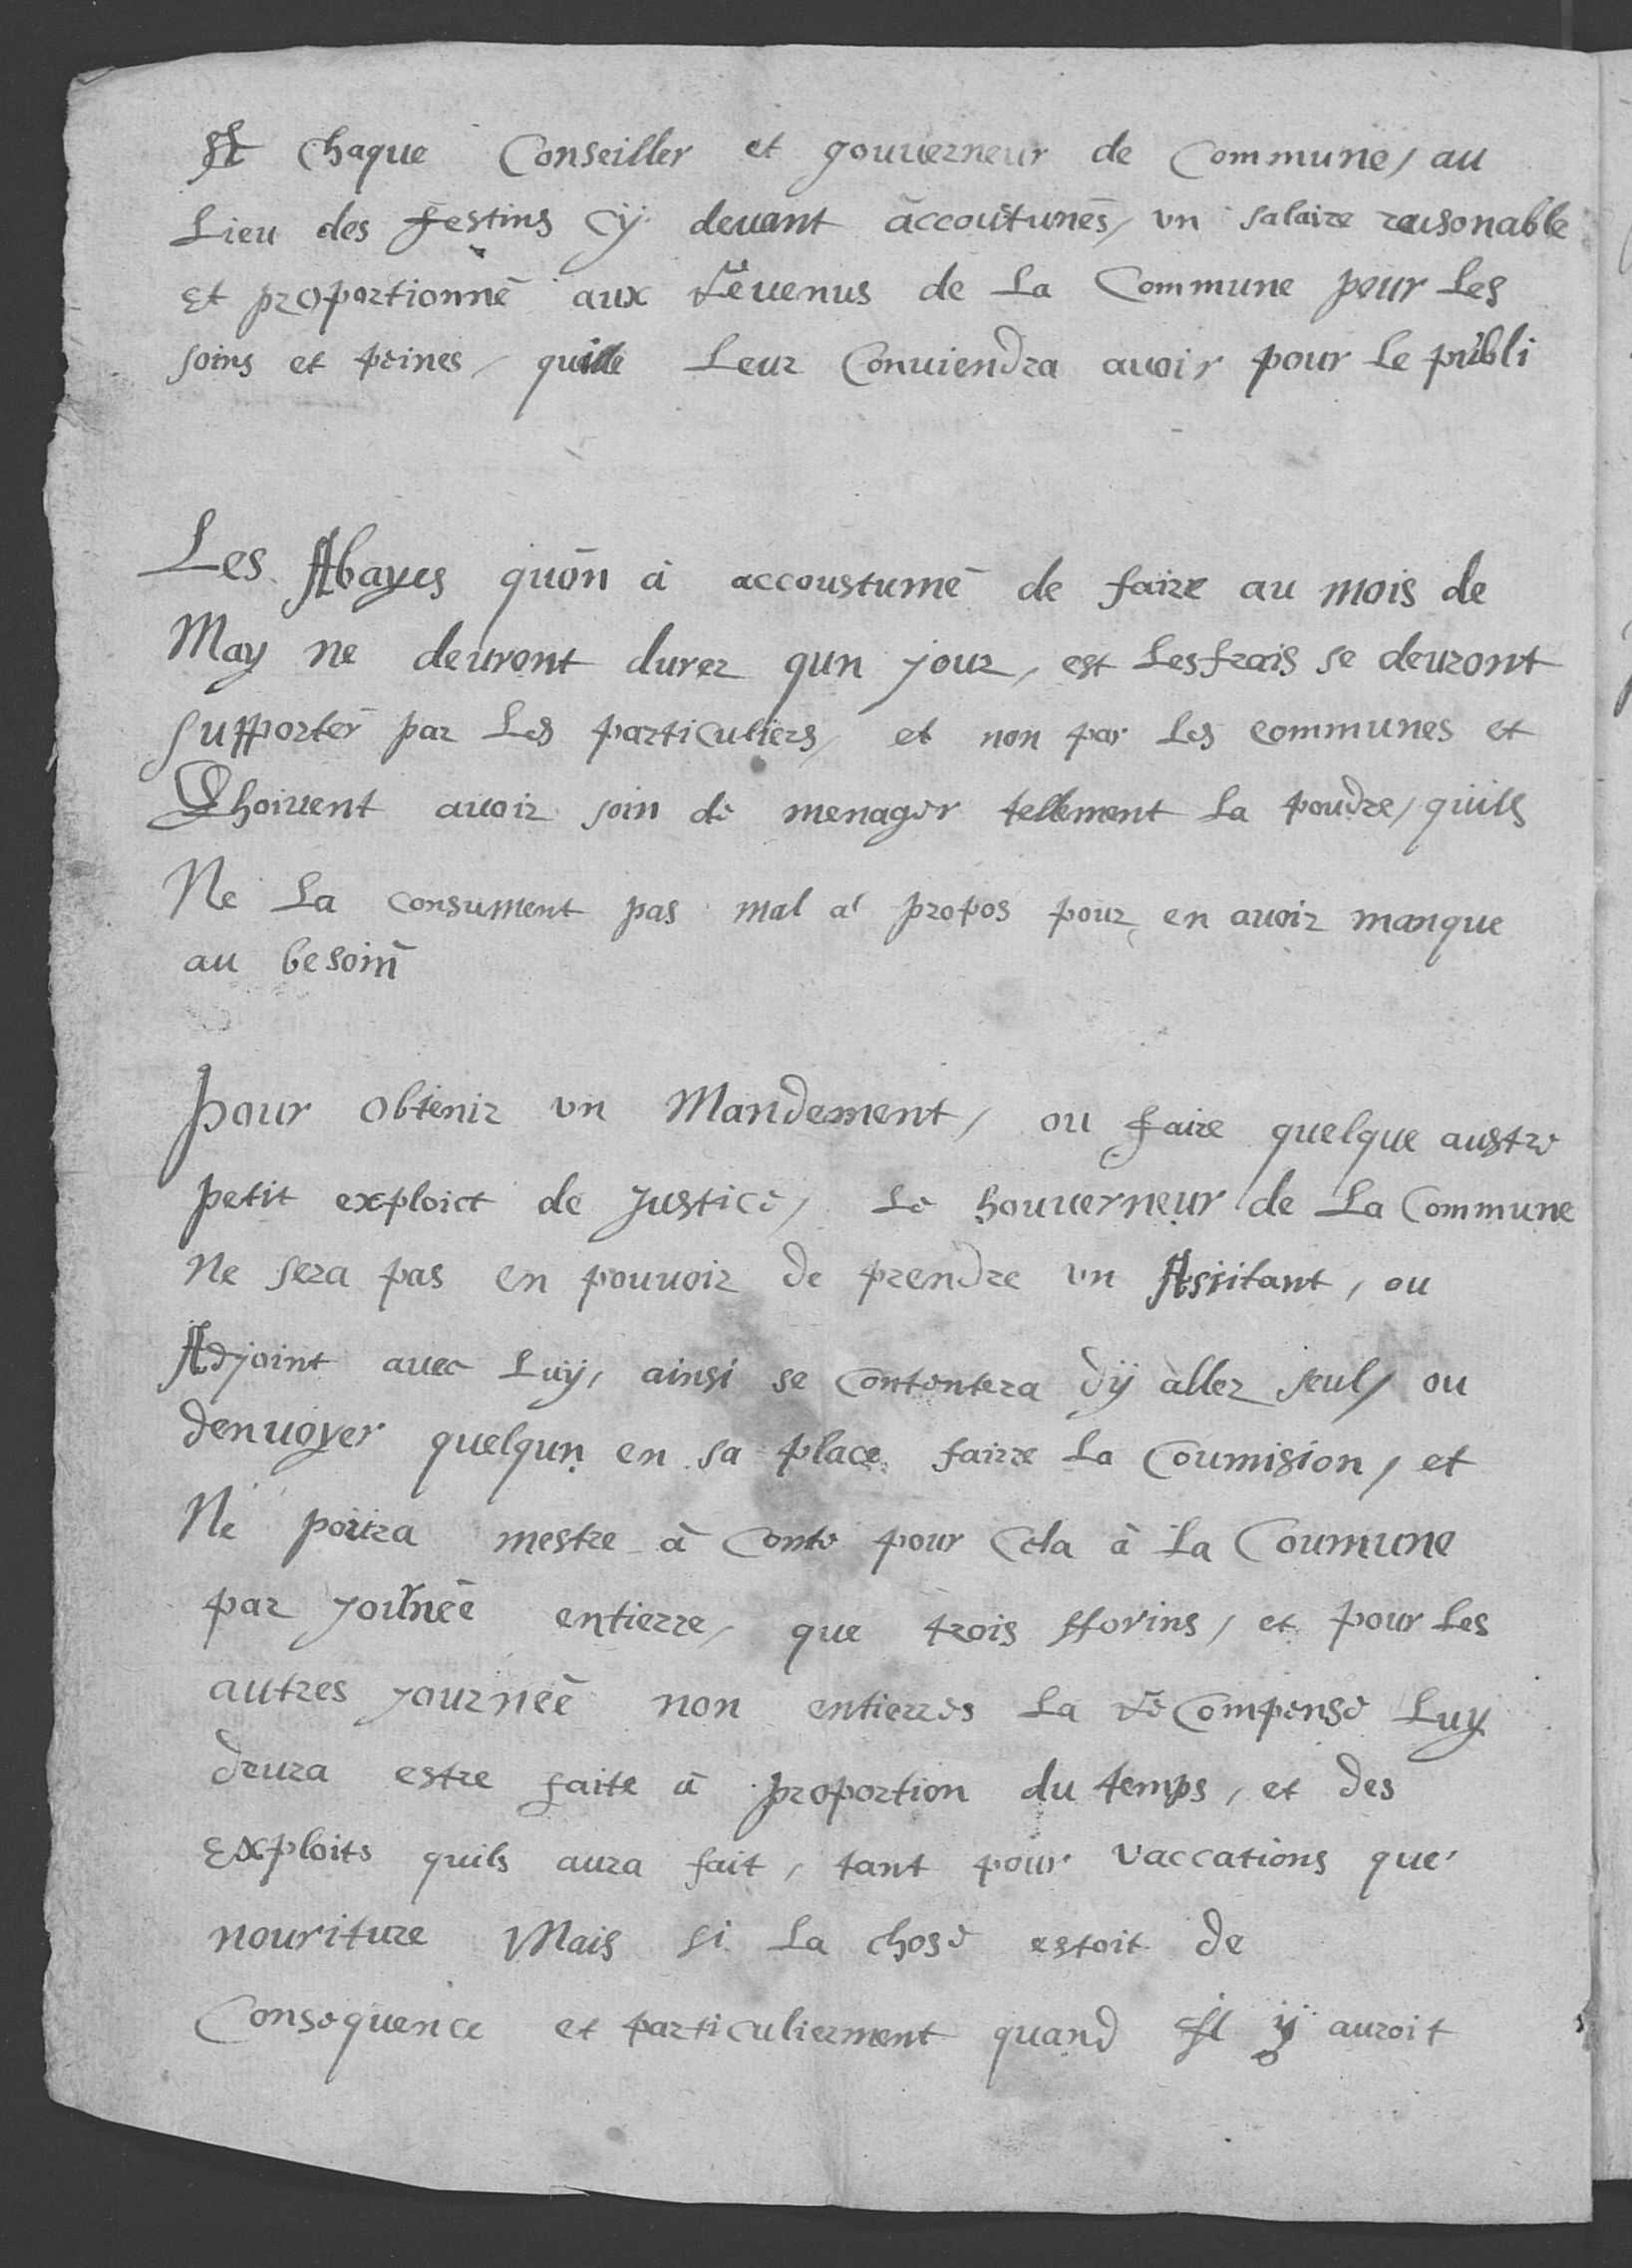 A chaque Conseiller et gouuerneur de Commune, au
Lieu des festins cÿ deuant accoûtumés, vn salaire raisonable
et proportionné aux Reuenus de La Commune pour Les
soins et peines, quille Leur Conuiendra auoir pour Le publi
Les Abayes quón à accoustumé de faire au mois de
May ne deuront durer qun jour, est Les frais se deuront
supporter par Les particuliers, et non par Les communes et
Dhoiuent auoir soin de menager tellement La poudre, quils
Ne La consument pas mal a' propos pour en auoir manque
au besoin
Pour obtenir vn Mandement, ou faire quelque austre
petit exploict de Justice, Le Gouuerneur de La Commune
Ne sera pas en pouuoir de prendre vn Assitant, ou
Adjoint auec Luÿ, ainsi se Contentera dÿ aller seul, ou
denuoyer quelqun en sa place faire La Coumision, et
Ne poura mestre à Conte pour Cela à La Coumune
par journée entierre, que trois fforins, et pour Les
autres journeé non entierres La ReCompense Luy
deura estre faite à proportion du temps, et des
exploits quils aura fait, tant pour vaccations que
nouriture Mais si La chose estoit de
Consequence et particulierment quand Il ÿ auroit